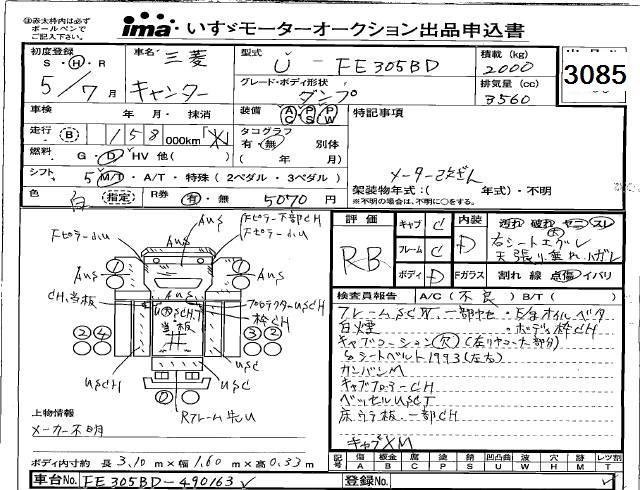 ⓪赤太枠内は必ず
ボールペンで
ご記入下さい。
ima いすゞモーターオークション出品申込書
初度登録 S・H・R 5/7月
車名 三菱 キャンター
型式 U - FE305BD
積載 (kg) 2000
3085
グレード・ボディ形状 ダンプ
排気量 (cc) 3560
車検 年 月・抹消
装備 AC PS PW
特記事項
走行 B 158000km
タコグラフ 有・無 別体
( 年 月)
燃料 G・D・HV 他( )
シフト 5 M/T・A/T・特殊(2ペダル・3ペダル)
メーター改ざん
架装物年式:( 年式)・不明
※不明の場合は、不明に○をする。
色 白 指定 R券 有・無 5070円
Fピラー小U
AUS
Fピラー下部CH
Fピラー小U
AUS
AUS
AUS
CH,当板
プロテクターUSCH
枠CH
当板
USCH
USC
Rフレーム先U
上物情報
メーカー不明
ボディ内寸約 長 3.10m×幅 1.60m×高 0.33m
車台No. FE305BD-490163
評価 RB
キャブ C
フレーム C
ボディ D
内装 D
汚れ 破れ ヤニ スレ
右シート大
天張り垂れ,ハガレ
Fガラス 割れ 線 点傷 イバリ
検査員報告 A/C(不良) B/T( )
フレームSC 一部ヤセ・E/gオイルベタ
白煙 ・ボデー枠CH
キャブコーション(欠)
シートベルト1993(左右)
カンバンM
キャブフロアーCH
ベッセルUSCT
床ウラ板一部CH
キャブXM
記号 傷 A 板金 B 腐 C 塗 P 錆 S 凹凸曲 U 波 W 穴 H 跡 M レツ割 T
登録No.